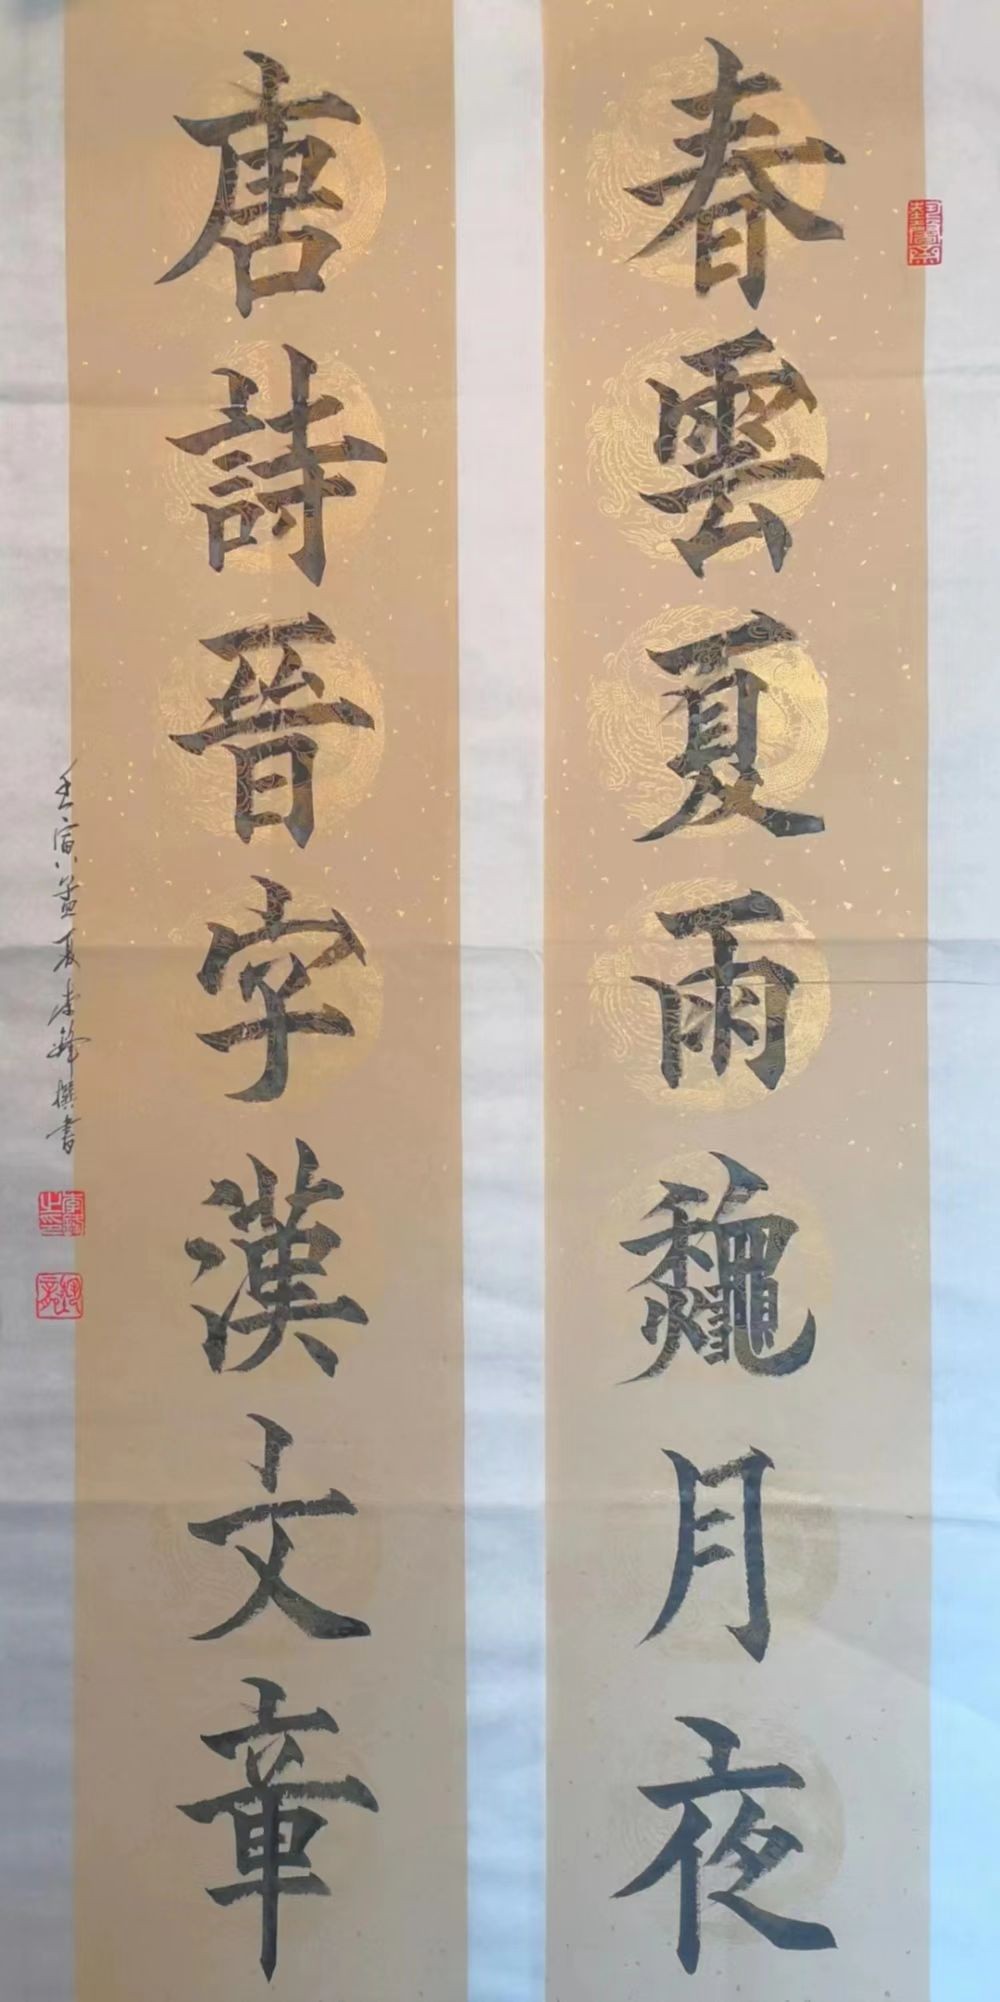 春雲夏雨龝月夜
唐詩晉字漢文章
壬寅孟夏 撰書